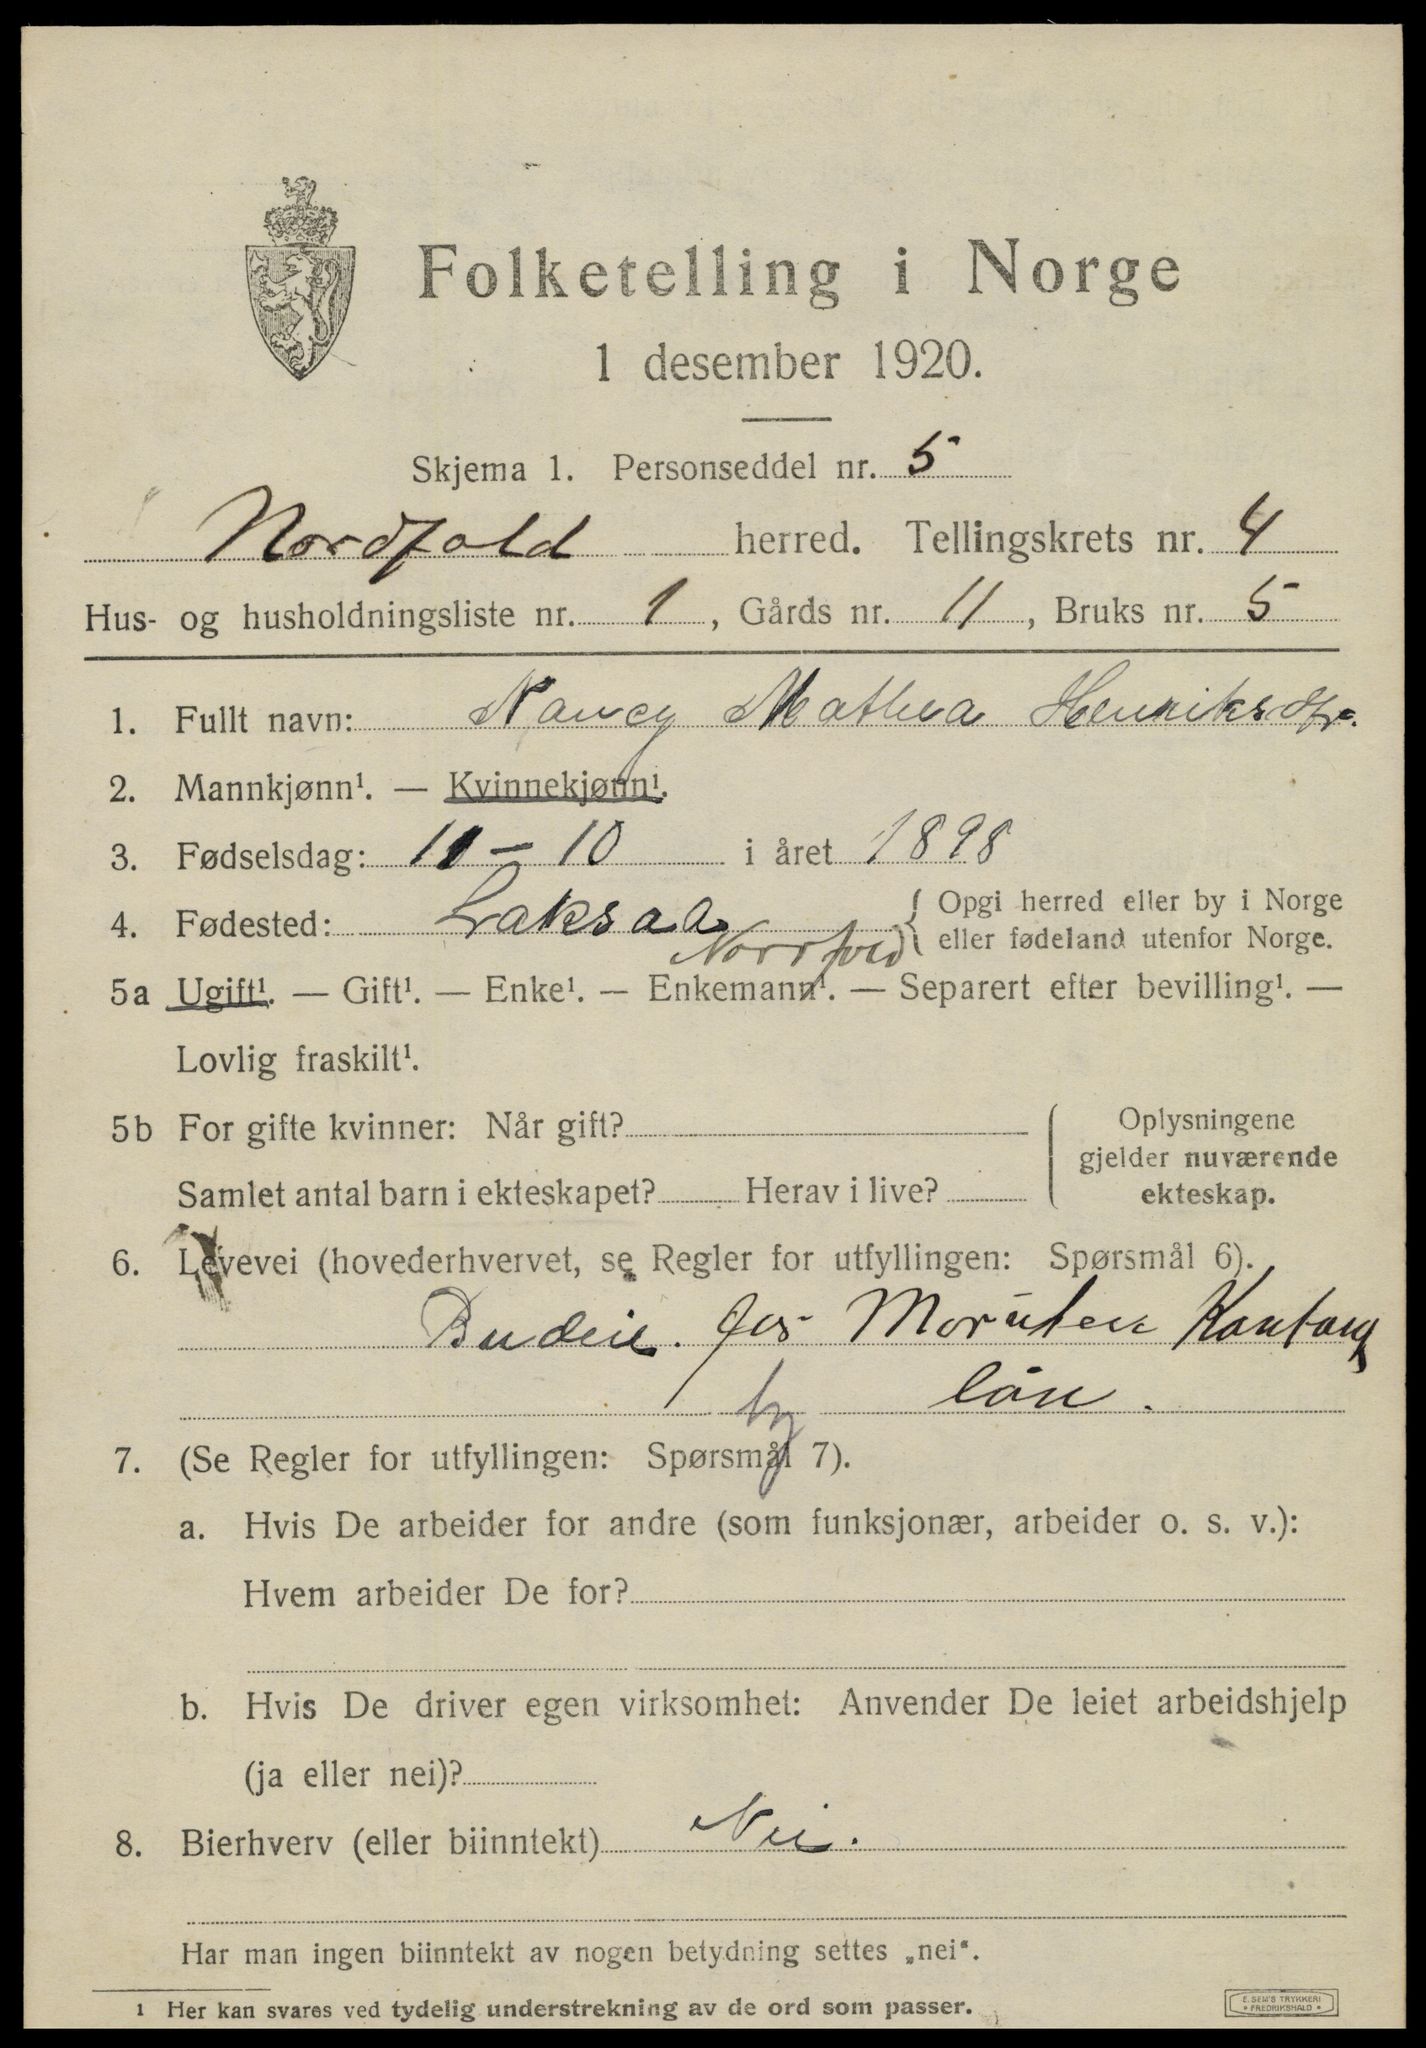 Folketelling i Norge
1 desember 1920.
Skjema 1. Personseddel nr. 5
Nordfold herred. Tellingskrets nr. 4
Hus- og husholdningsliste nr. 1, Gårds nr. 11, Bruks nr. 5
1. Fullt navn: Nancy Mathea Henriksdtr.
2. Mannkjønn¹. — Kvinnekjønn¹.
3. Fødselsdag: 11 – 10 i året 1898
4. Fødested: Laksaa { Opgi herred eller by i Norge
Nordfold { eller fødeland utenfor Norge.
5a Ugift¹. — Gift¹. — Enke¹. — Enkemann¹. — Separert efter bevilling¹. —
Lovlig fraskilt¹.
5b For gifte kvinner: Når gift? Oplysningene
gjelder nuværende
Samlet antal barn i ekteskapet? Herav i live? ekteskap.
6. Levevei (hovederhvervet, se Regler for utfyllingen: Spørsmål 6).
Budeie. for Kontant
lön.
7. (Se Regler for utfyllingen: Spørsmål 7).
a. Hvis De arbeider for andre (som funksjonær, arbeider o. s. v.):
Hvem arbeider De for?
b. Hvis De driver egen virksomhet: Anvender De leiet arbeidshjelp
(ja eller nei)?
8. Bierhverv (eller biinntekt) Nei.
Har man ingen biinntekt av nogen betydning settes „nei“.
1 Her kan svares ved tydelig understrekning av de ord som passer.
E. SEM'S TRYKKERI
• FREDRIKSHALD •